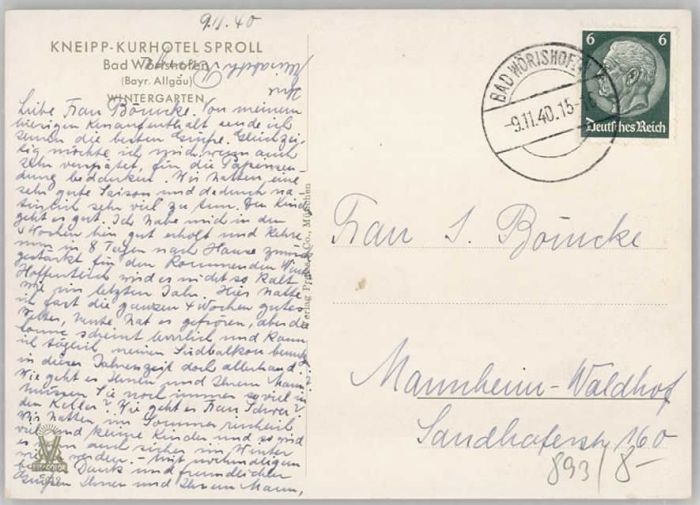 9.11.40
KNEIPP-KURHOTEL SPROLL
Bad Wörishofen
(Bayr. Allgäu)
WINTERGARTEN
Liebe Frau Bömcke. Von meinem
hierigen Kuraufenthalt sende ich
Ihnen die besten Grüße. Gleichzei-
tig möchte ich mich, wenn auch
sehr verspätet für die Papiersen-
dung bedanken. Wir hatten eine
sehr gute Saison und dadurch na-
türlich sehr viel zu tun. Den Kindern
geht es gut. Ich habe mich in den
4 Wochen hier gut erholt und kehre
nun in 8 Tagen nach Hause zurück
gestärkt für den kommenden Winter.
Hoffentlich wird es nicht so kalt
wie im letzten Jahr. Hier hatte
ich fast die ganzen 4 Wochen gutes
Wetter, heute hat es gefroren, aber die
Sonne scheint herrlich und kann
ich täglich meinen Südbalkon
in dieser Jahreszeit doch allerhand?
Wie geht es Ihnen und Ihrem Mann?
Müssen Sie noch immer so viel in
den Keller? Wie geht es Frau
Wir hatten im Sommer
viel und keine Kinder und so wird
es auch sicher im Winter
werden. Mit nochmaligem
Dank und freundlichen
Grüßen Ihnen und Ihrem Mann,
BAD WÖRISHOFEN
-9.11.40.15-
6 6
Deutsches Reich
Frau S. Bömcke
Mannheim-Waldhof
Sandhoferstr 160
893/8-